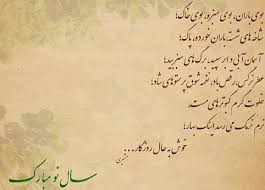 بوی باران، بوی سبزه، بوی خاک؛
شاخه های شسته، باران خورده، پاک؛
آسمان آبی و ابر سپید، برگ های سبز بید؛
عطر نرگس، رقص باد، نغمه شوق پرستوهای شاد؛
خلوت گرم کبوترهای مست،
نرم نرمک می رسد اینک بهار؛
خوش به حال روزگار....
سال نو مبارک